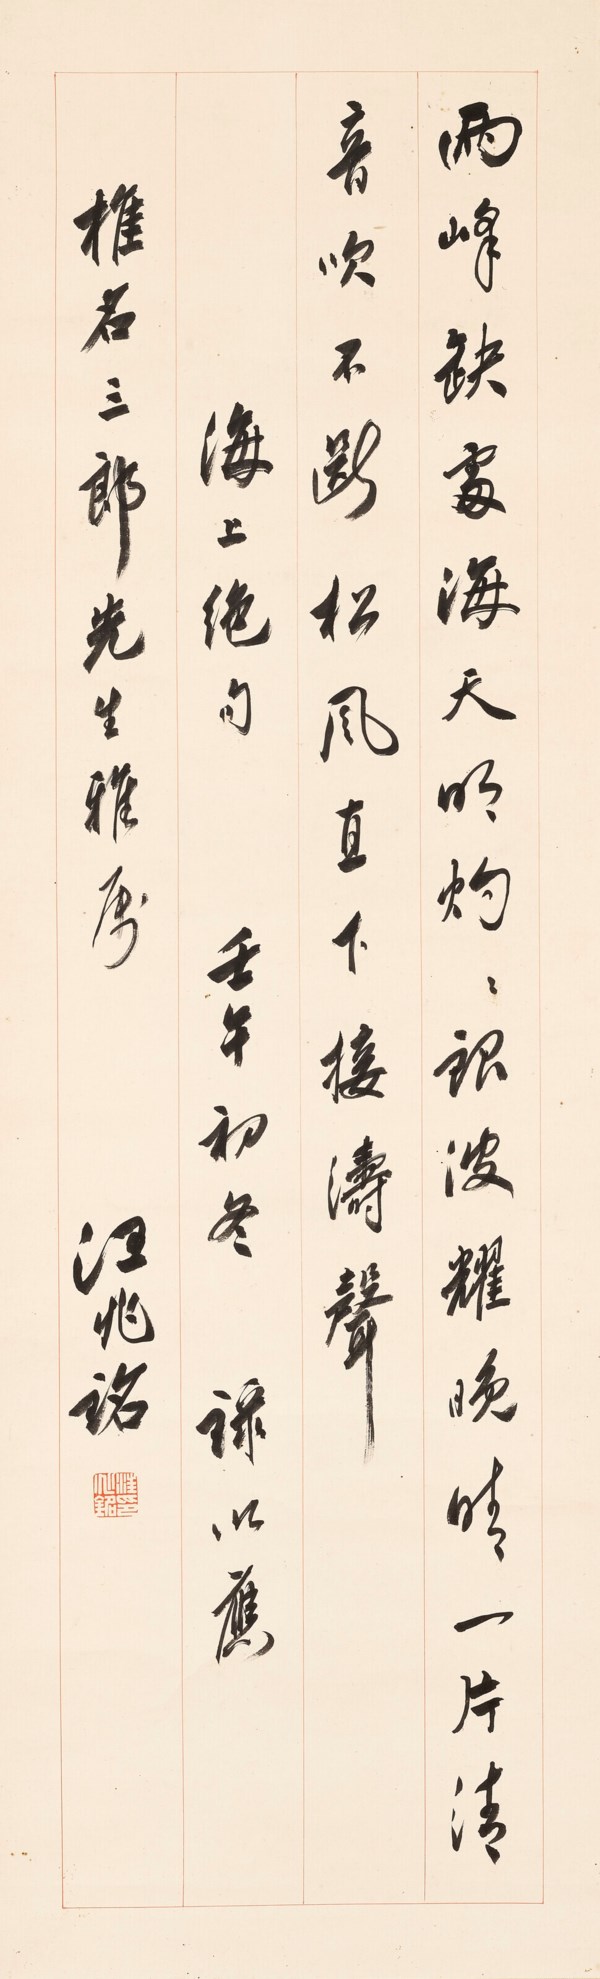 兩峰缺處海天明灼〻銀波耀晚晴一片清
音吹不斷松風直下接濤聲
海上絶句 壬午初冬 録以應
椎名三郎先生雅属 汪兆銘
汪兆銘印